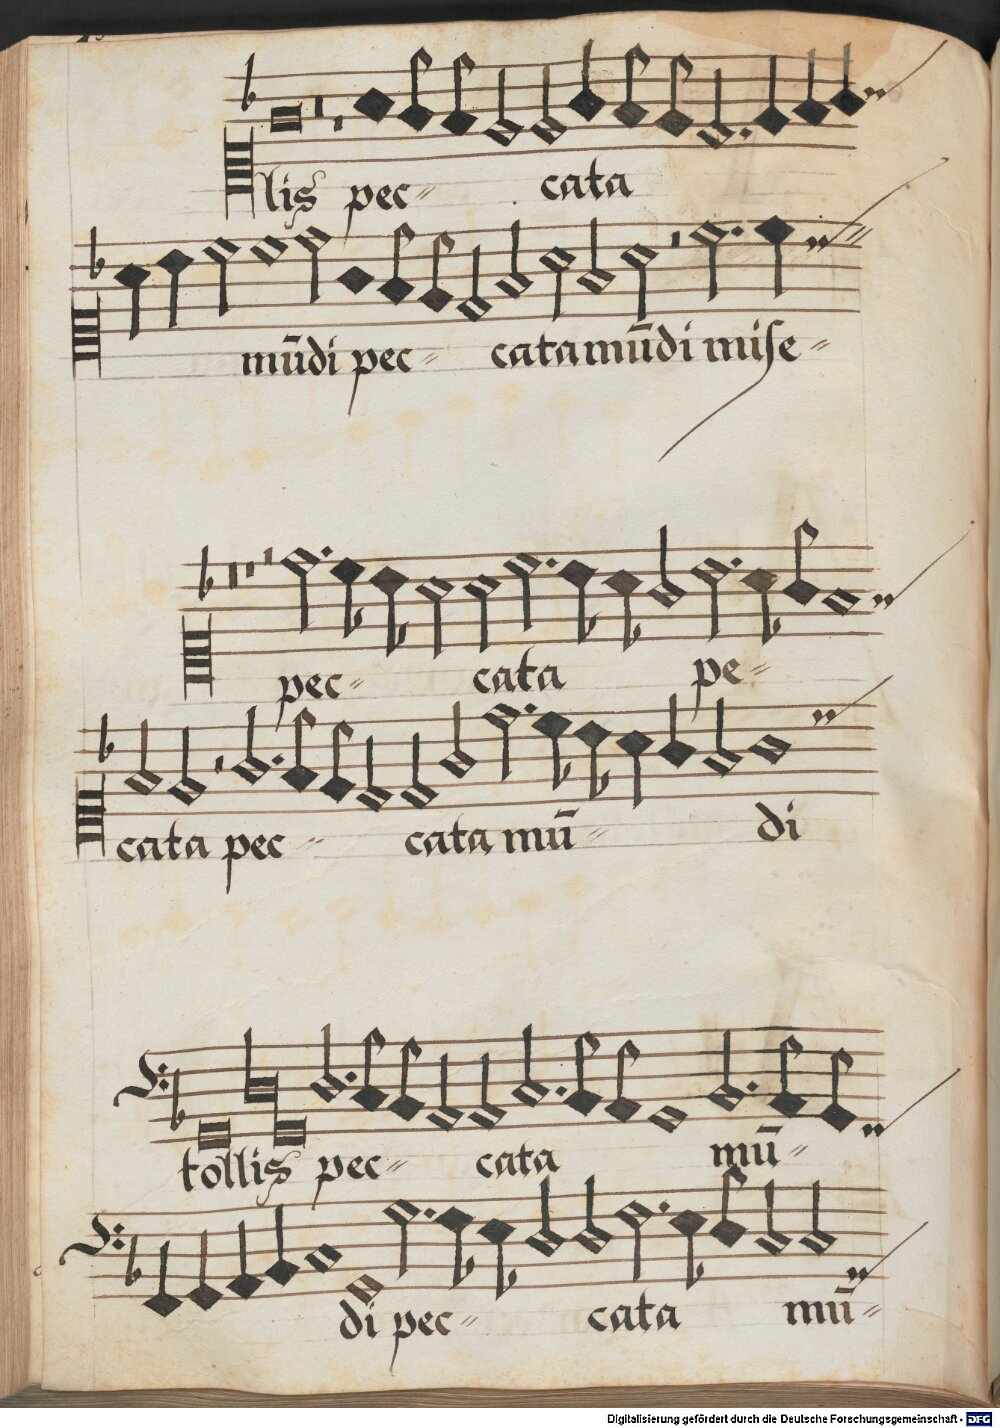 lis pec= cata
mūdi pec= cata mūdi mise=
pec= cata pe=
cata pec= cata mū= di
tollis pec= cata mū=
di pec= cata mū=
Digitalisierung gefördert durch die Deutsche Forschungsgemeinschaft - DFG